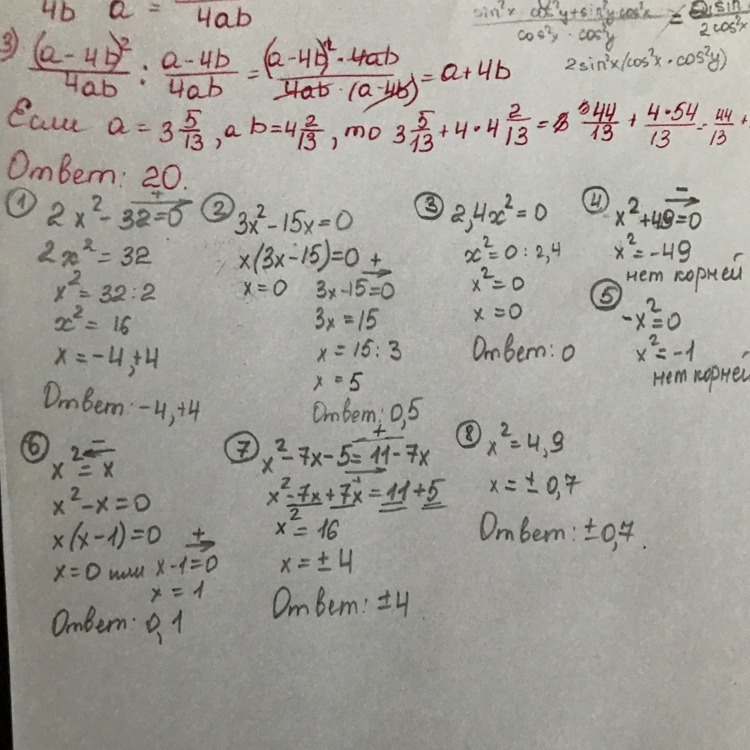 4b a = 4ab
sin²x cos²y + sin²y cos²x / cos²x · cos²y =
2cos²x
2sin²x(cos²x · cos²y)
3) (a-4b)² / 4ab : a-4b / 4ab = (a-4b)² · 4ab / 4ab · (a-4b) = a+4b
Если a = 3 5/13, а b = 4 2/13, то 3 5/13 + 4 · 4 2/13 = 44/13 + 4·54/13 = 44/13 +
Ответ: 20.
① 2x² - 32 = 0
2x² = 32
x² = 32 : 2
x² = 16
x = -4, +4
Ответ: -4, +4
② 3x² - 15x = 0
x(3x - 15) = 0
x = 0 3x - 15 = 0
3x = 15
x = 15 : 3
x = 5
Ответ: 0,5
③ 2,4x² = 0
x² = 0 : 2,4
x² = 0
x = 0
Ответ: 0
④ x² + 49 = 0
x² = -49
нет корней
⑤ -x² = 0
x² = -1
нет корней
⑥ x² = x
x² - x = 0
x(x - 1) = 0
x = 0 или x - 1 = 0
x = 1
Ответ: 0, 1
⑦ x² - 7x - 5 = 11 - 7x
x² - 7x + 7x = 11 + 5
x² = 16
x = ± 4
Ответ: ±4
⑧ x² = 4,9
x = ± 0,7
Ответ: ±0,7.